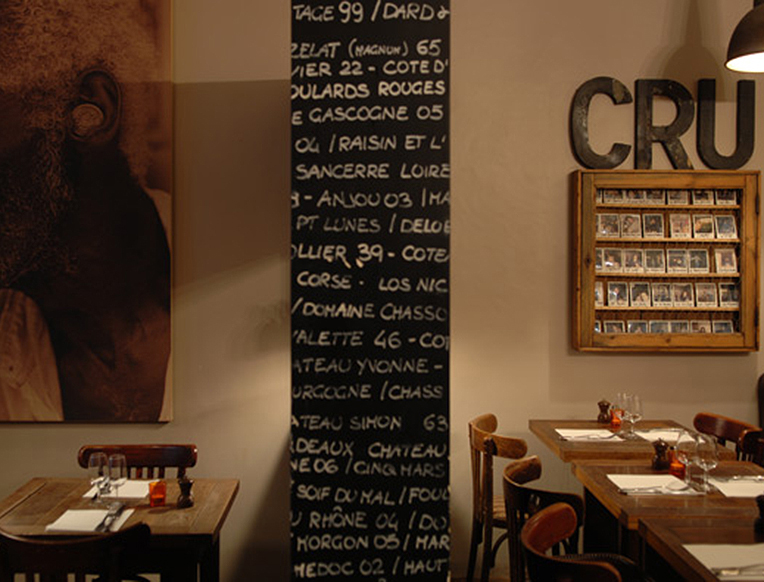 TAGE 99 / DARD &
ZELAT (MAGNUM) 65
VIER 22 - COTE D'
OULARDS ROUGES
E GASCOGNE 05
04 / RAISIN ET L'
SANCERRE LOIRE
- ANJOU 03 / MA
PT LUNES / DELOE
OLLIER 39 - COTE
CORSE - LOS NIC
/ DOMAINE CHASSO
VALETTE 46 - COT
ATEAU YVONNE -
URGOGNE / CHASS
ATEAU SIMON 63
RDEAUX CHATEAU
NE 06 / CINQ MARS
SOIF DU MAL / FOUC
U RHÔNE 04 / DO
MORGON 05 / MAR
MEDOC 02 / HAUT
CRU